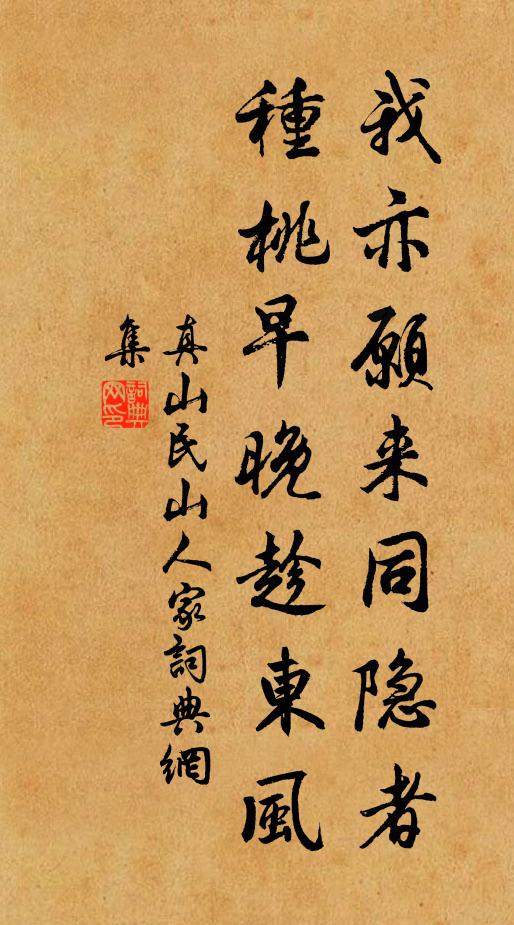 我亦願来同隐者
種桃早晚趁東風
真山民山人家詞典網
集
詞典网印